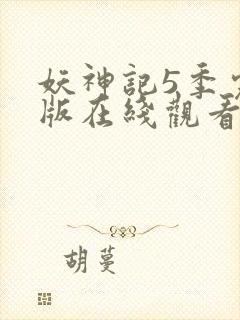 妖神記5季
版在綫觀看
胡蔓